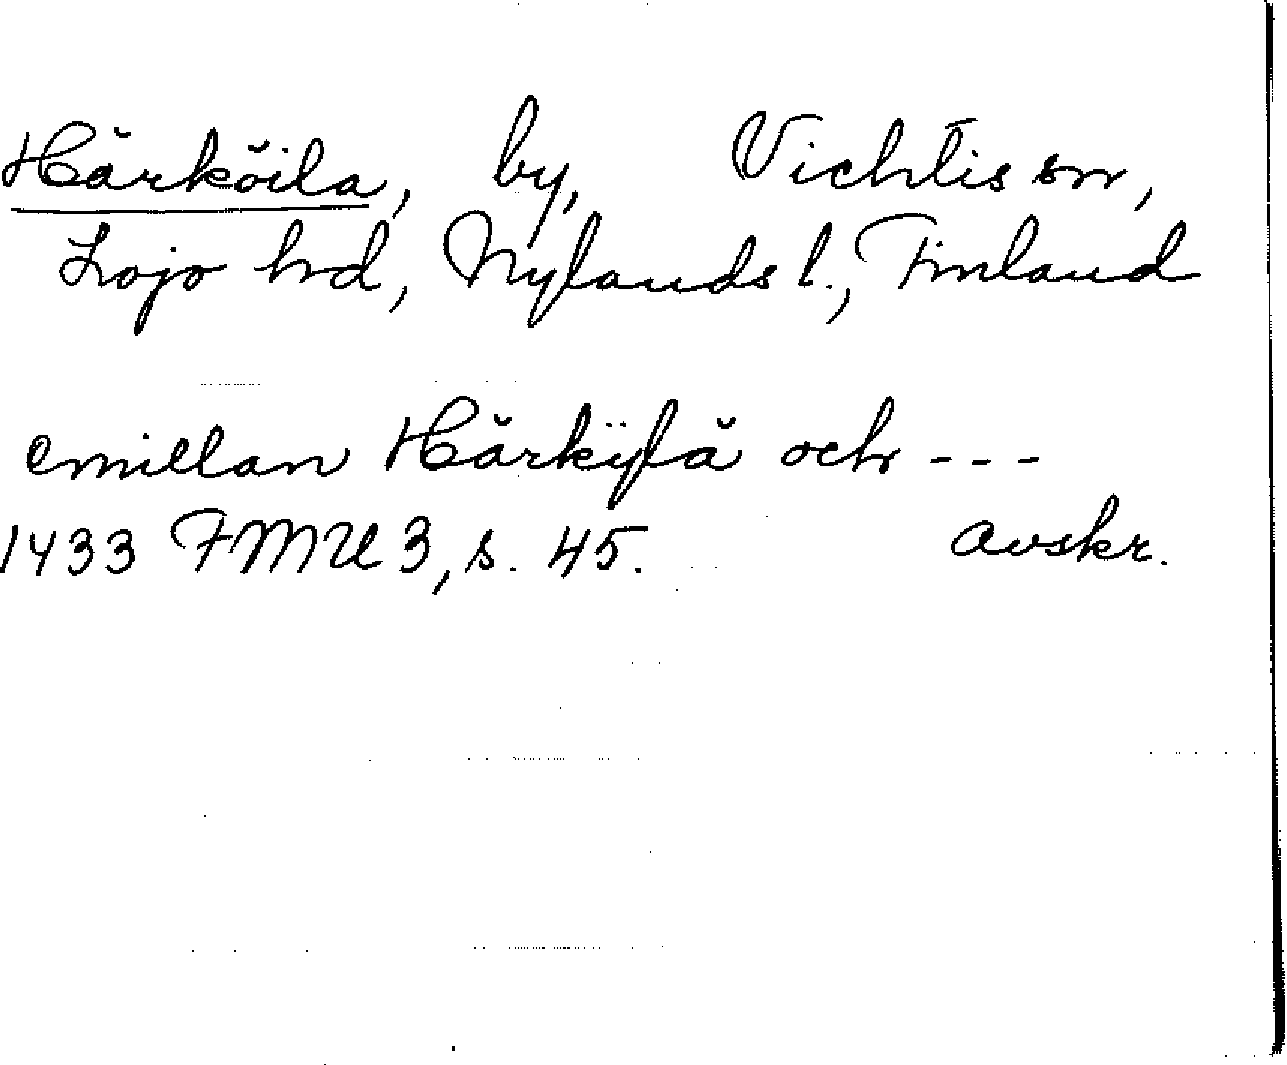 Härköila, by, Vichtis sn,
Lojo hd, Nylands l., Finland
emillan Härkÿlä och ---
1433 FMU 3, s. 45. avskr.